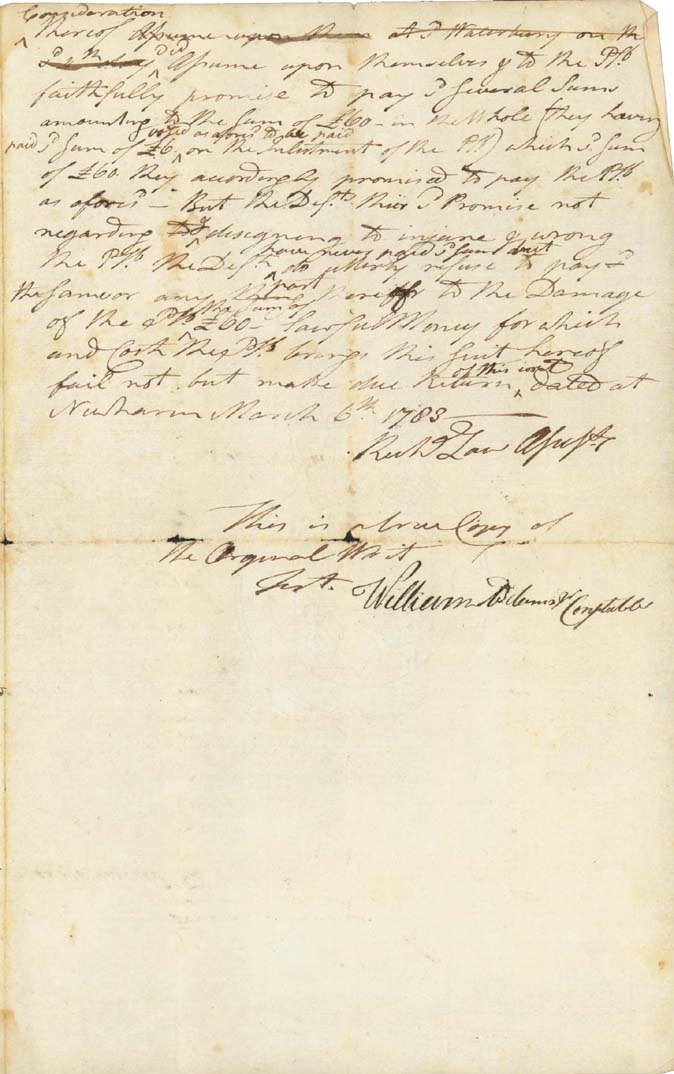 Consideration
^ thereof Assume upon them At sd Waterbury on the
sd day ^ Did Assume upon themselves & to the Pltf
faithfully promise to pay sd Several Sums
amounting to the Sum of £60 - in the Whole (they having
voted as aforesd to be paid
paid sd Sum of £6 ^ on the Inlistment of the Plt) which sd Sum
of £60 they accordingly promised to pay the Pltf
as aforesd - But the Defts their sd Promise not
regarding & designing to injure & wrong
have never paid sd Sum but
the Pltf the Defts ^ do utterly refuse to pay
part
the same or any thereof to the Damage
the Sum of
of the sd Pltf ^ £60 - Lawfull Money for which
and Cost the sd Pltf brings this Suit hereof
of this writ
fail not but make due Return ^ dated at
Newhaven March 6th 1783
Richd Law Assist
This is a true Copy of
the Orginal Writ
Test. William Adams Constable